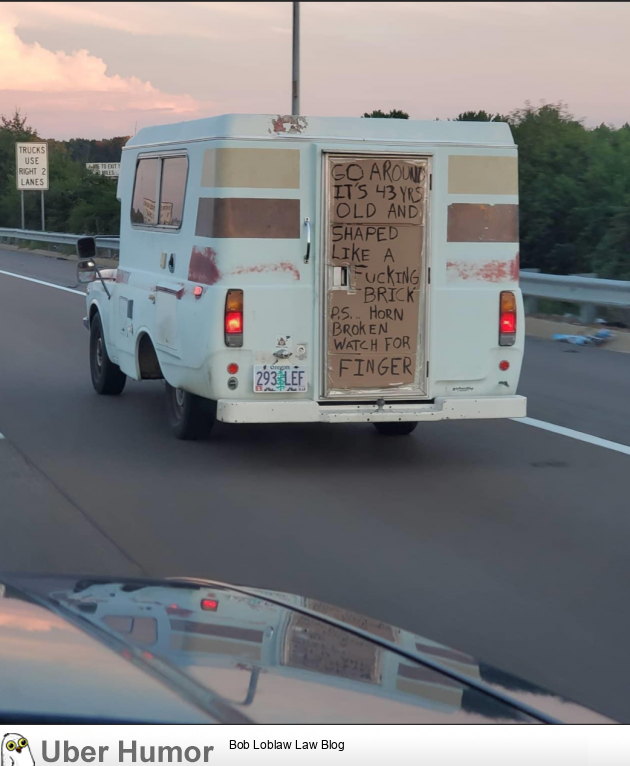 TRUCKS
USE
RIGHT 2
LANES
GO AROUND
IT'S 43 YRS
OLD AND
SHAPED
LIKE A
FUCKING
BRICK
P.S.. HORN
BROKEN
WATCH FOR
FINGER
Oregon
293 LEF
Uber Humor
Bob Loblaw Law Blog